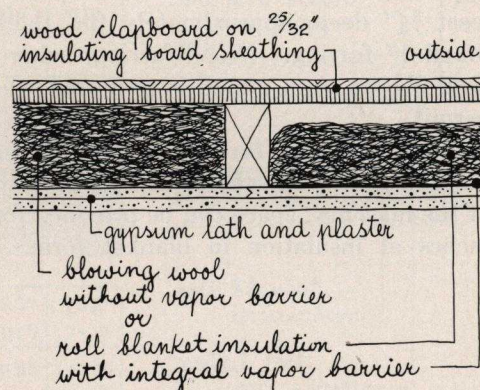 wood clapboard on 25/32"
insulating board sheathing
outside
gypsum lath and plaster
blowing wool
without vapor barrier
or
roll blanket insulation
with integral vapor barrier